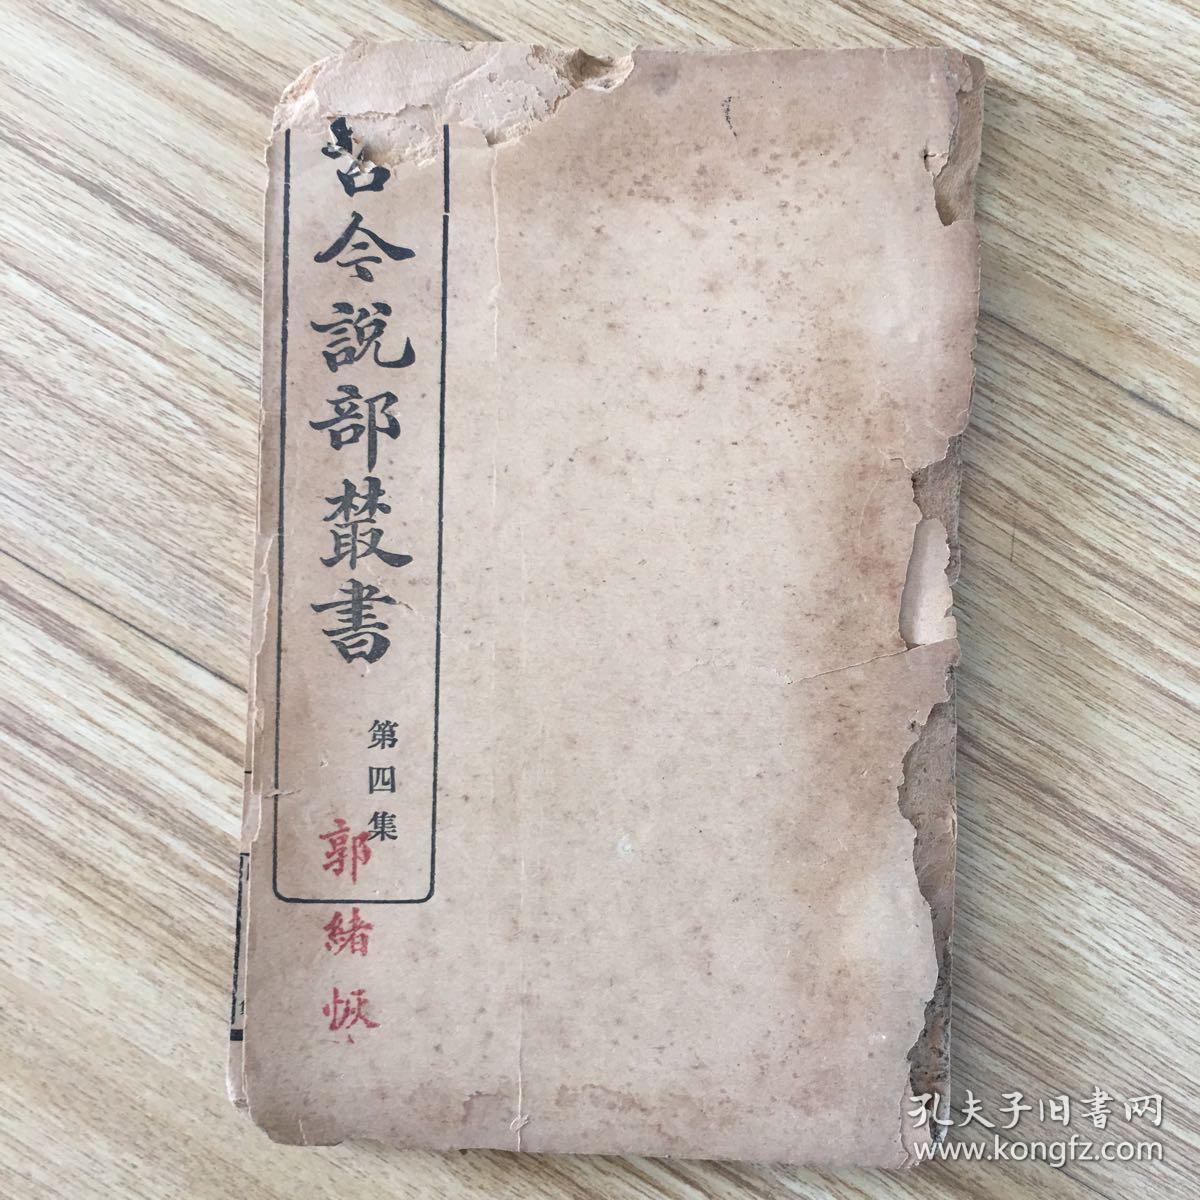 古今說部叢書
第四集
郭緒恢
孔夫子旧書网
www.kongfz.com